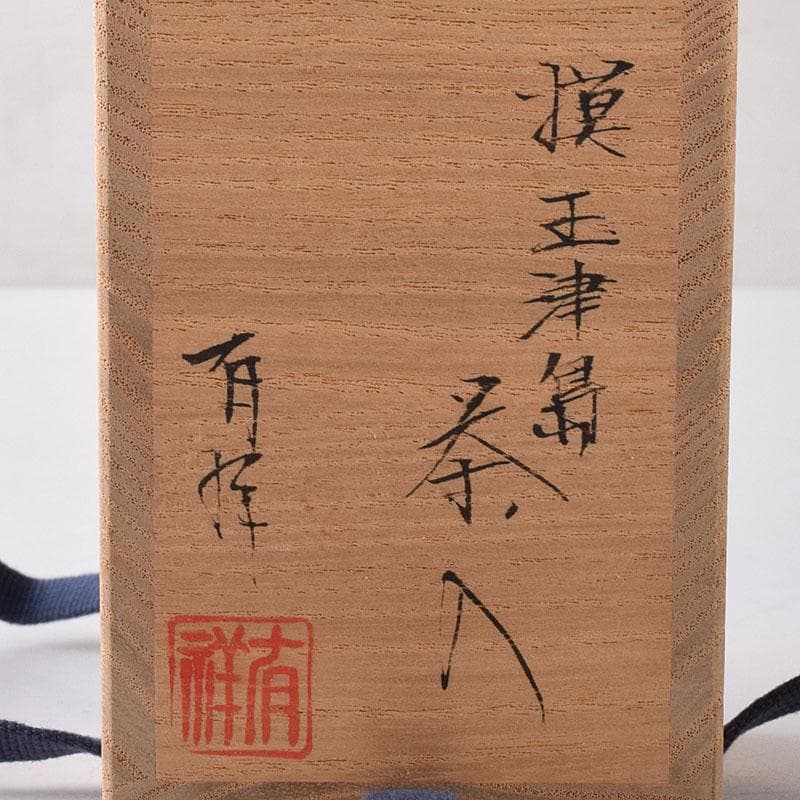 摸玉津島
茶入
有祥
有祥